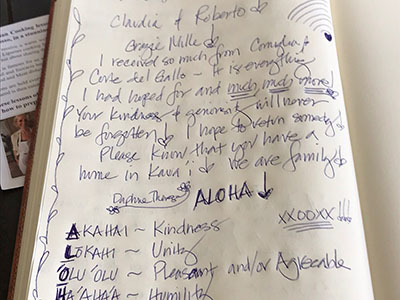 Claudia & Roberto
Grazie Mille
I received so much from Corniglia &
Corte del Gallo ~ It is everything
I had hoped for and much, much more!
Your kindness & generosity will never
be forgotten! I hope to return someday
Please know that you have a
home in Kaua'i We are family
Daphne
ALOHA
XXOOXX
AKAHAI ~ Kindness
LOKAHI ~ Unity
OLU'OLU ~ Pleasant and/or Agreeable
HA'AHA'A ~ Humility